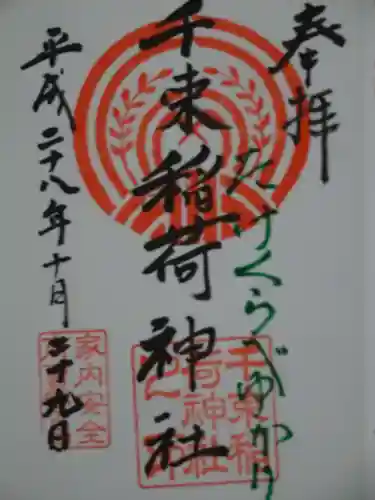 奉拝
たけくらべゆかり
千束稲荷神社
平成二十八年十月二十九日
千束稲
荷神社
家内安全